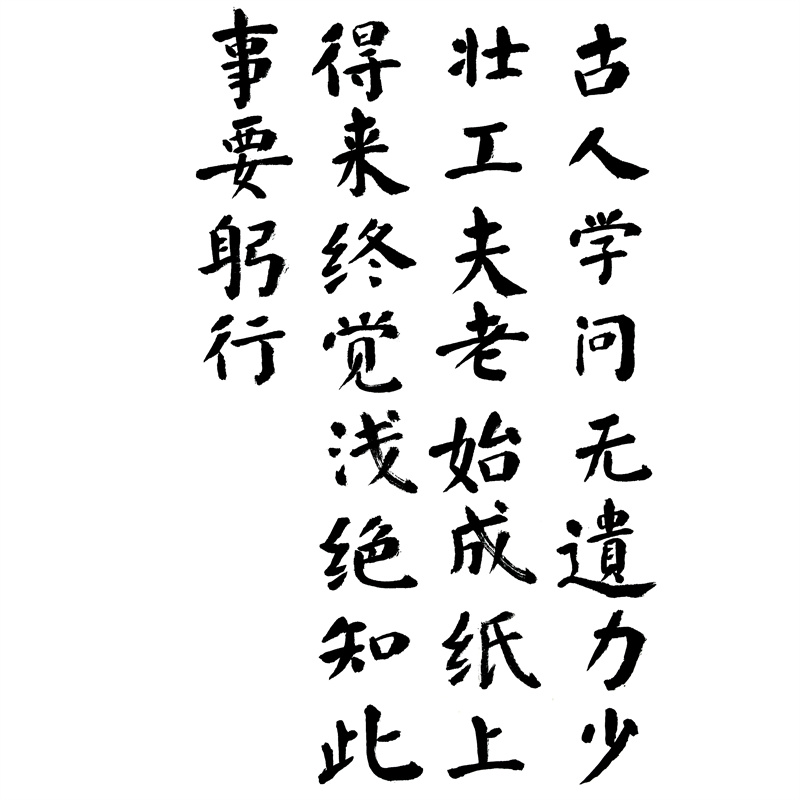 古人学问无遺力少
壮工夫老始成纸上
得来终觉浅绝知此
事要躬行